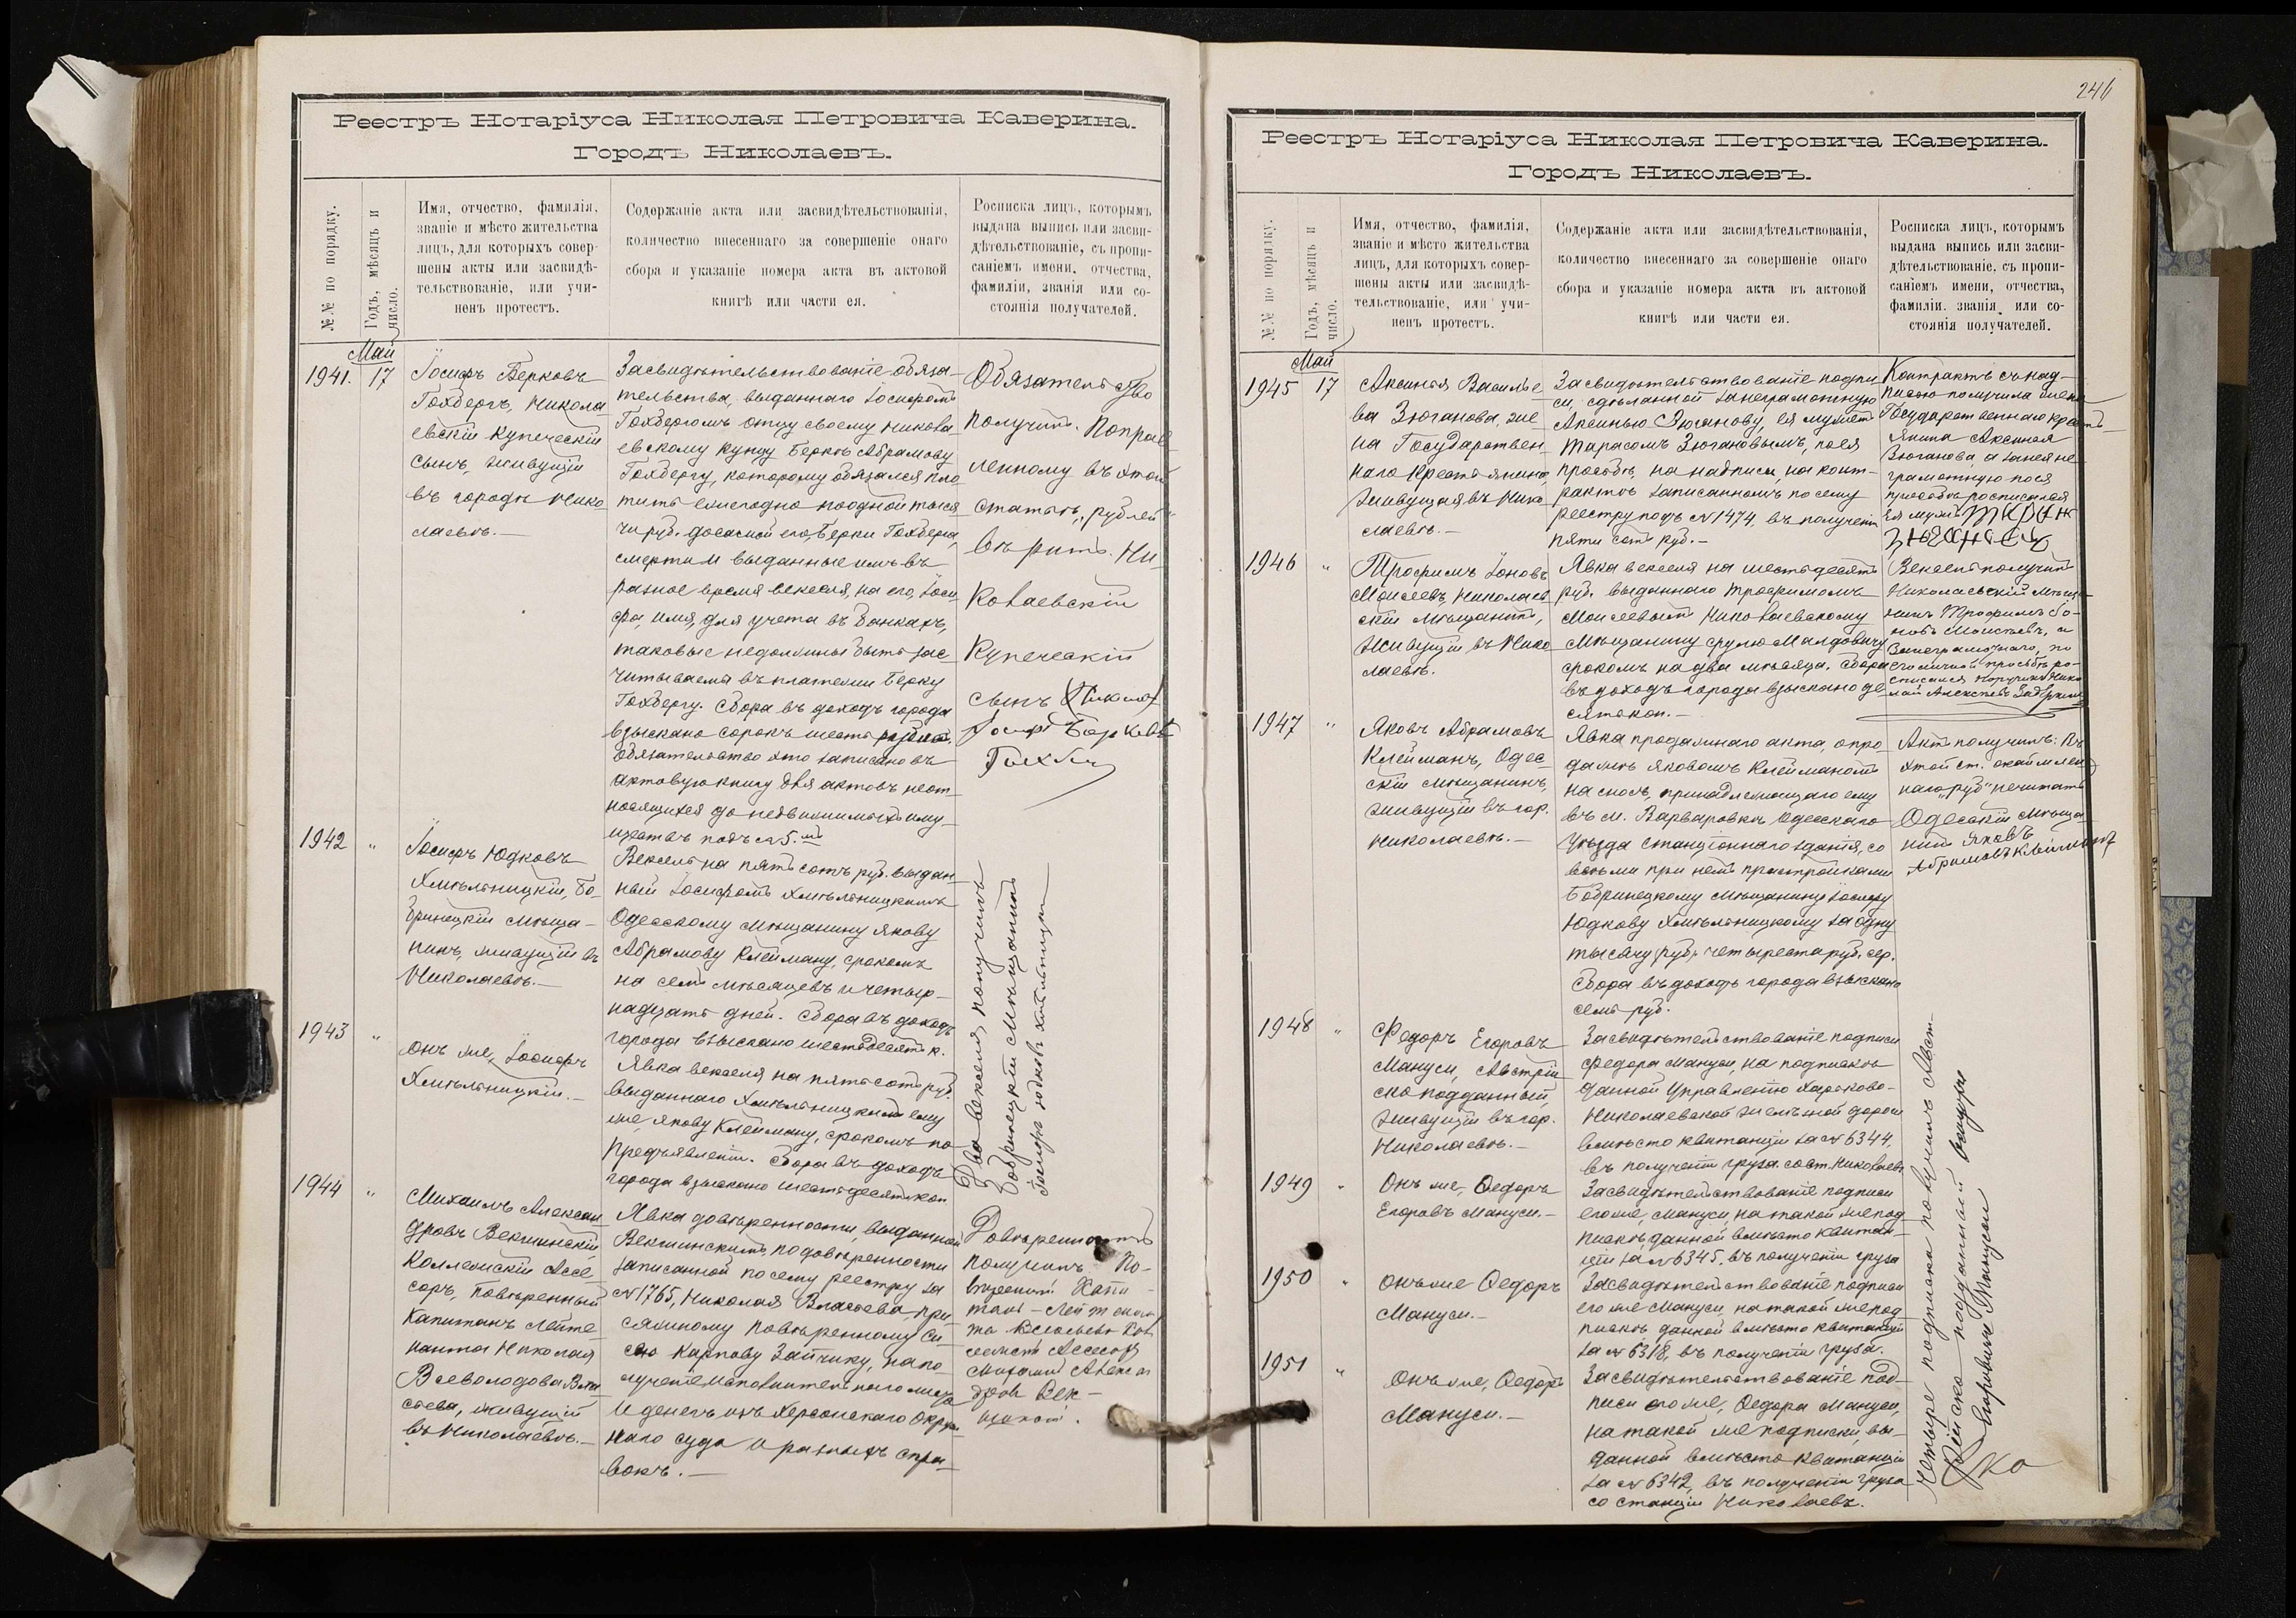 Реестръ Нотаріуса Николая Петровича Каверина.
Городъ Николаевъ.
№№ по порядку.
Годъ, мѣсяцъ и
число.
Имя, отчество, фамилія,
званіе и мѣсто жительства
лицъ, для которыхъ совер-
шены акты или засвидѣ-
тельствованіе, или учи-
ненъ протестъ.
Содержаніе акта или засвидѣтельствованія,
количество внесеннаго за совершеніе онаго
сбора и указаніе номера акта въ актовой
книгѣ или части ея.
Росписка лицъ, которымъ
выдана выпись или засви-
дѣтельствованіе, съ пропи-
саніемъ имени, отчества,
фамиліи, званія или со-
стоянія получателей.
Май
1941. 17
Іосифъ Берковъ
Гохбергъ, Никола
евскій купеческій
сынъ, живущій
въ городѣ Нико
лаевѣ.—
Засвидѣтельствованіе обяза-
тельства, выданнаго Іосифомъ
Гохбергомъ отцу своему Никола
евскому купцу Беркѣ Абрамову
Гохбергу, которому обязался пла
тить ежегодно по одной тыся
чи руб. до самой его, Берки Гохберга,
смерти и выданные имъ въ
разное время векселя, на его, Іоси
фа, имя, для учета въ банкахъ,
таковые недолжны быть рас
читываемы въ платежи Берку
Гохбергу. Сбора въ доходъ города
взыскано сорокъ шесть рублей.
Обязательство это записано въ
актовую книгу для актовъ неот-
носящихся до недвижимыхъ иму-
ществъ подъ №5.
Обязательство
получилъ. Поправ
ленному въ этой
статьѣ „рублей“
вѣрить. Ни
колаевскій
Купеческій
сынъ
Іосифъ Берковъ
Гохбергъ
1942 "
Іосифъ Юдковъ
Хмѣльницкій, Бо-
бринецкій мѣща-
нинъ, живущій въ
Николаевѣ.—
Вексель на пять сотъ руб. выдан-
ный Іосифомъ Хмѣльницкимъ
Одесскому мѣщанину Якову
Абрамову Клейману, срокомъ
на семь мѣсяцевъ и четыр-
надцать дней. Сбора въ доходъ
города взыскано шестьдесятъ к.
1943 "
Онъ же, Іосифъ
Хмѣльницкій.—
Явка векселя на пять сотъ руб.
выданнаго Хмѣльницкимъ ему
же, Якову Клейману, срокомъ по
предъявленіи. Сбора въ доходъ
города взыскано шестьдесятъ коп.
Два векселя получилъ
Бобринецкій мѣщанинъ
Іосифъ Юдковъ Хмѣльницкій
1944 "
Михаилъ Алексан
дровъ Векшинскій
Коллежскій Ассе
соръ, повѣренный
Капитанъ Лейте
нанта Николая
Всеволодова Вла
сьева, живущій
въ Николаевѣ.—
Явка довѣренности, выданной
Векшинскимъ, по довѣренности
записанной по сему реестру за
№1765, Николая Власьева, при
сяжному повѣренному Си
сою Карпову Зайчику, на по
лученіе исполнительнаго листа
и денегъ изъ Херсонскаго Окруж
наго суда и разныхъ спра
вокъ.—
Довѣренность
получилъ По-
вѣренный Капи
танъ-Лейтенан
та Власьева Кол
лежскій Ассесоръ
Михаилъ Алексан
дровъ Век-
шинскій.
246
Реестръ Нотаріуса Николая Петровича Каверина.
Городъ Николаевъ.
№№ по порядку.
Годъ, мѣсяцъ и
число.
Имя, отчество, фамилія,
званіе и мѣсто жительства
лицъ, для которыхъ совер-
шены акты или засвидѣ-
тельствованіе, или учи-
ненъ протестъ.
Содержаніе акта или засвидѣтельствованія,
количество внесеннаго за совершеніе онаго
сбора и указаніе номера акта въ актовой
книгѣ или части ея.
Росписка лицъ, которымъ
выдана выпись или засви-
дѣтельствованіе, съ пропи-
саніемъ имени, отчества,
фамиліи. званія или со-
стоянія получателей.
Май
1945 17
Аксинья Василье
ва Зюганова, же
на Государствен
наго крестьянина
живущая въ Нико
лаевѣ.—
Засвидѣтельствованіе подпи
си, сдѣланной за неграмотную
Аксинью Зюганову, ея мужемъ
Тарасомъ Зюгановымъ, по ея
просьбѣ, на надписи, на конт-
рактѣ записанномъ по сему
реестру подъ №1474, въ полученіи
пяти сотъ руб.—
Контрактъ съ над-
писью получила жена
Государственнаго кресть
янина Аксинья
Зюганова а за нея не
грамотную по ея
просьбѣ росписался
ея мужъ
1946 "
Трофимъ Іоновъ
Моисеевъ, Николаев
скій мѣщанинъ,
живущій въ Нико
лаевѣ.
Явка векселя на шестьдесятъ
руб. выданнаго Трофимомъ
Моисеевымъ Николаевскому
мѣщанину Срулю Малдовичу
срокомъ на два мѣсяца. Сбора
въ доходъ города взыскано де
сять коп.—
Вексель получилъ
Николаевскій мѣща-
нинъ Трофимъ Іо-
новъ Моисеевъ, а
за неграмотнаго, по
его личной просьбѣ ро-
списался Поручикъ Нико
лай Алексѣевъ
1947 "
Яковъ Абрамовъ
Клейманъ, Одес-
скій мѣщанинъ,
живущій въ гор.
Николаевѣ.—
Явка продажнаго акта, о про
дажѣ Яковомъ Клейманомъ
на сносъ, принадлежащаго ему
въ м. Варваровкѣ Одесскаго
Уѣзда станціоннаго зданія, со
всѣми при немъ пристройками
Бобринецкому мѣщанину Іосифу
Юдкову Хмѣльницкому за одну
тысячу руб. четыреста руб. сер.
Сбора въ доходъ города взыскано
семь руб.
Актъ получилъ: Въ
этой ст. окаймлен
наго „руб“ нечитать
Одесскій мѣща
нинъ Яковъ
Абрамовъ Клейманъ
1948 "
Федоръ Егоровъ
Мануси, Австрій
ско подданный,
живущій въ гор.
Николаевѣ.—
Засвидѣтельствованіе подписи
Федора Мануси, на подпискѣ
данной Управленію Харьково-
Николаевской жел&#1123;зной дороги
вмѣсто квитанціи за №6344,
въ полученіи груза со ст. Николаевъ
1949 "
Онъ же, Федоръ
Егоровъ Мануси.—
Засвидѣтельствованіе подписи
его же, Мануси, на такой же под
пискѣ, данной вмѣсто квитан-
ціи за №6345, въ полученіи груза
1950 "
Онъ же Федоръ
Мануси.—
Засвидѣтельствованіе подписи
его же Мануси, на такой же под
пискѣ данной вмѣсто квитанціи
за №6318, въ полученіи груза.
1951 "
Онъ же, Федоръ
Мануси.—
Засвидѣтельствованіе под-
писи его же, Федора Мануси,
на такой же подписки, вы-
данной вмѣсто квитанціи
за №6342, въ полученіи груза
со станціи Николаевъ.
Четыре подписки получилъ Авст-
рійско подданный Федоръ
Егоровичъ Мануси